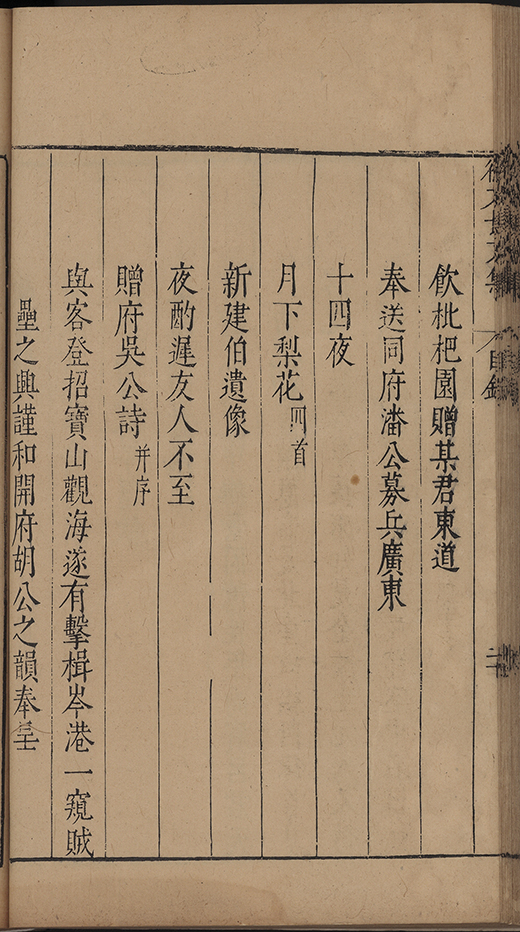 徐文長文集 目錄 二
飲枇杷園贈某君東道
奉送同府潘公募兵廣東
十四夜
月下梨花四首
新建伯遺像
夜酌遲友人不至
贈府吳公詩并序
與客登招寶山觀海遂有擊楫岑港一窺賊
壘之興謹和開府胡公之韻奉呈